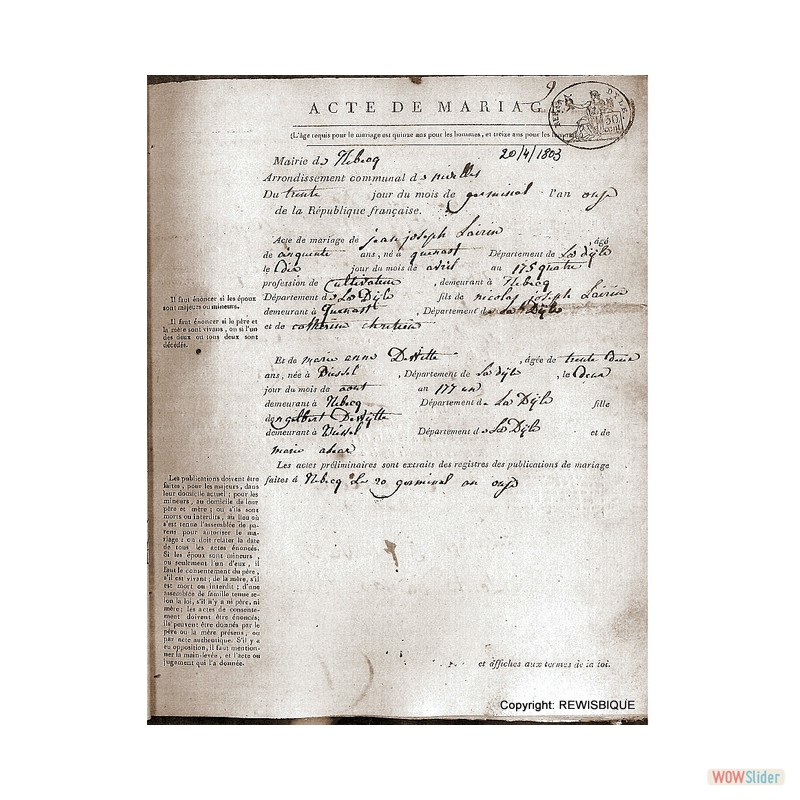 9
ACTE DE MARIAG
DYLE
30
(L'âge requis pour le mariage est quinze ans pour les hommes, et treize ans pour les
Mairie de Rebecq 20/4/1803
Arrondissement communal de nivelles
Du trente jour du mois de germinal l'an onze
de la République française.
Acte de mariage de jean joseph Lairin , âgé
de cinquante ans, né à quenast Département de La dÿle
le dix jour du mois de avril an 175quatre
profession de Cultivateur , demeurant à Rebecq
Département de La Dÿle fils de nicolas joseph Lairin
demeurant à Quenast Département de La Dÿle
et de catherine chretien
Il faut énoncer si les époux
sont majeurs ou mineurs.
Il faut énoncer si le père et
la mère sont vivans, ou si l'un
des deux ou tous deux sont
décédés.
Et de marie anne DeWitte , âgée de trente deux
ans, née à Département de La dÿle , le deux
jour du mois de aout an 177 un
demeurant à Rebecq Département de La Dÿle fille
de DeWytte
demeurant à Département de La Dÿle et de
marie
Les actes préliminaires sont extraits des registres des publications de mariage
faites à Rebecq Le 20 germinal an onze
Les publications doivent être
faites, pour les majeurs, dans
leur domicile actuel ; pour les
mineurs, au domicile de leur
père et mère ; ou s'ils sont
morts ou interdits, au lieu où
s'est tenue l'assemblée de pa-
rens pour autoriser le ma-
riage : on doit relater la date
de tous les actes énoncés.
Si les époux sont mineurs,
ou seulement l'un d'eux, il
faut le consentement du père,
s'il est vivant ; de la mère, s'il
est mort ou interdit ; d'une
assemblée de famille tenue se-
lon la loi, s'il n'y a ni père, ni
mère ; les actes de consente-
ment doivent être énoncés;
ils peuvent être donnés par le
père ou la mère présens, ou
par acte authentique. S'il y a
eu opposition, il faut mention-
ner la main-levée, et l'acte ou
jugement qui l'a donnée.
et affiches aux termes de la loi.
Copyright: REWISBIQUE
WOWSlider